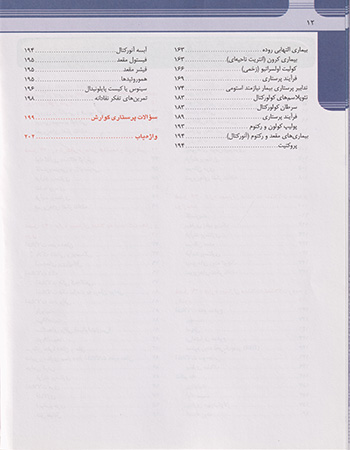 ۱۲
بیماری التهابی روده ۱۶۳
بیماری کرون (آنتریت ناحیه‌ای) ۱۶۳
کولیت اولسراتیو (زخمی) ۱۶۶
فرآیند پرستاری ۱۶۹
تدابیر پرستاری بیمار نیازمند استومی ۱۷۴
نئوپلاسم‌های کولورکتال ۱۸۲
سرطان کولورکتال ۱۸۳
فرآیند پرستاری ۱۸۹
پولیپ کولون و رکتوم ۱۹۳
بیماری‌های مقعد و رکتوم (آنورکتال) ۱۹۴
پروکتیت ۱۹۴
آبسه آنورکتال ۱۹۴
فیستول مقعد ۱۹۵
فیشر مقعد ۱۹۵
هموروئیدها ۱۹۵
سینوس یا کیست پایلونیدال ۱۹۶
تمرین‌های تفکر نقادانه ۱۹۸
سؤالات پرستاری گوارش ۱۹۹
واژه‌یاب ۲۰۲